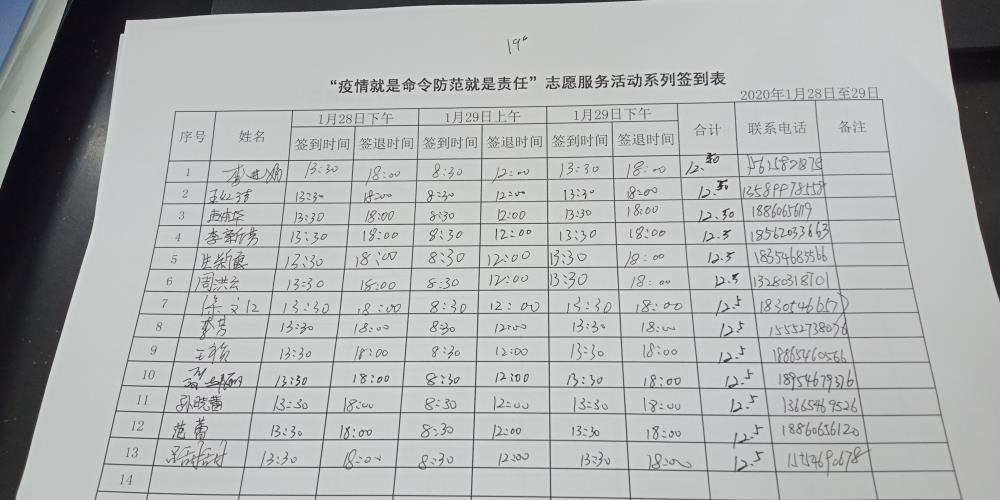 19"
“疫情就是命令防范就是责任”志愿服务活动系列签到表
2020年1月28日至29日
序号 姓名 1月28日下午 1月29日上午 1月29日下午 合计 联系电话 备注
签到时间 签退时间 签到时间 签退时间 签到时间 签退时间
1 13:30 18:00 8:30 12:00 13:30 18:00 12.30
2 13:30 18:00 8:30 12:00 13:30 18:00 12.30
3 13:30 18:00 8:30 12:00 13:30 18:00 12.30
4 13:30 18:00 8:30 12:00 13:30 18:00 12.5 18562033663
5 13:30 18:00 8:30 12:00 13:30 18:00 12.5 18354685566
6 周洪云 13:30 18:00 8:30 12:00 13:30 18:00 12.5 13280318701
7 13:30 18:00 8:30 12:00 13:30 18:00 12.5
8 李芳 13:30 18:00 8:30 12:00 13:30 18:00 12.5
9 13:30 18:00 8:30 12:00 13:30 18:00 12.5 18865460566
10 13:30 18:00 8:30 12:00 13:30 18:00 12.5 18954679376
11 孙晓蕾 13:30 18:00 8:30 12:00 13:30 18:00 12.5 13665469526
12 范蕾 13:30 18:00 8:30 12:00 13:30 18:00 12.5 18860656120
13 13:30 18:00 8:30 12:00 13:30 18:00 12.5
14